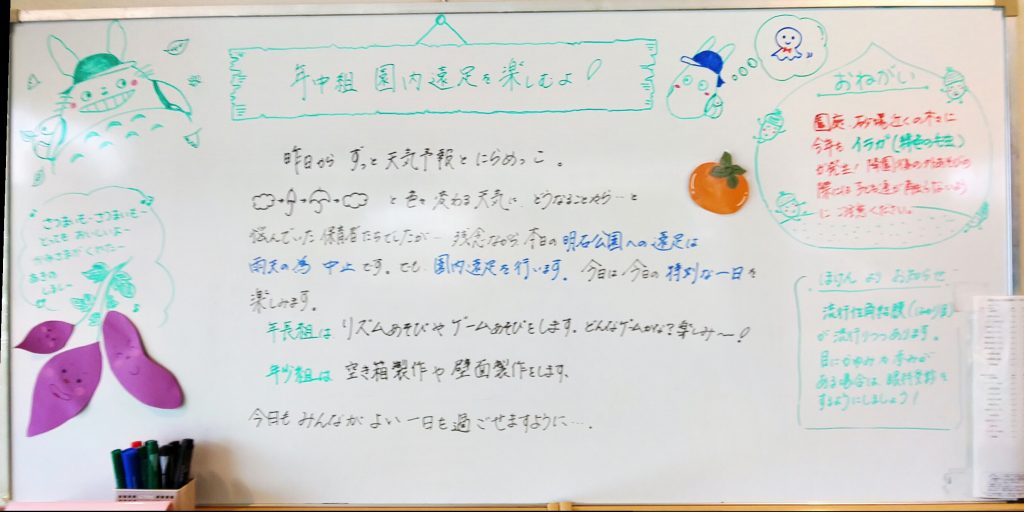 年中組 園内遠足を楽しむよ!
昨日から ずっと 天気予報と にらめっこ。
と色々変わる天気に、どうなることやら…と
悩んでいた保育者たちでしたが… 残念ながら 本日の 明石公園への遠足は
雨天の為 中止です。でも、園内遠足を行います。今日は今日の特別な一日を
楽しみます。
年長組は リズムあそびや ゲームあそびをします。どんなゲームかな?楽しみ〜!
年少組は 空き箱製作や 壁面製作をします。
今日も みんなが よい 一日を 過ごせますように…。
さつまいも・さつまいも〜
とっても おいしいよ〜
おねがい
園庭、砂場近くの木に
今年も イラガ(緑色の毛虫)
が発生!降園後の外あそびの
際には 子ども達が触らないよう
に ご注意ください。
ほけん より お知らせ
流行性角結膜(はやり目)
が 流行りつつあります。
目に かゆみ や 赤みが
ある場合は、眼科受診を
するようにしましょう!